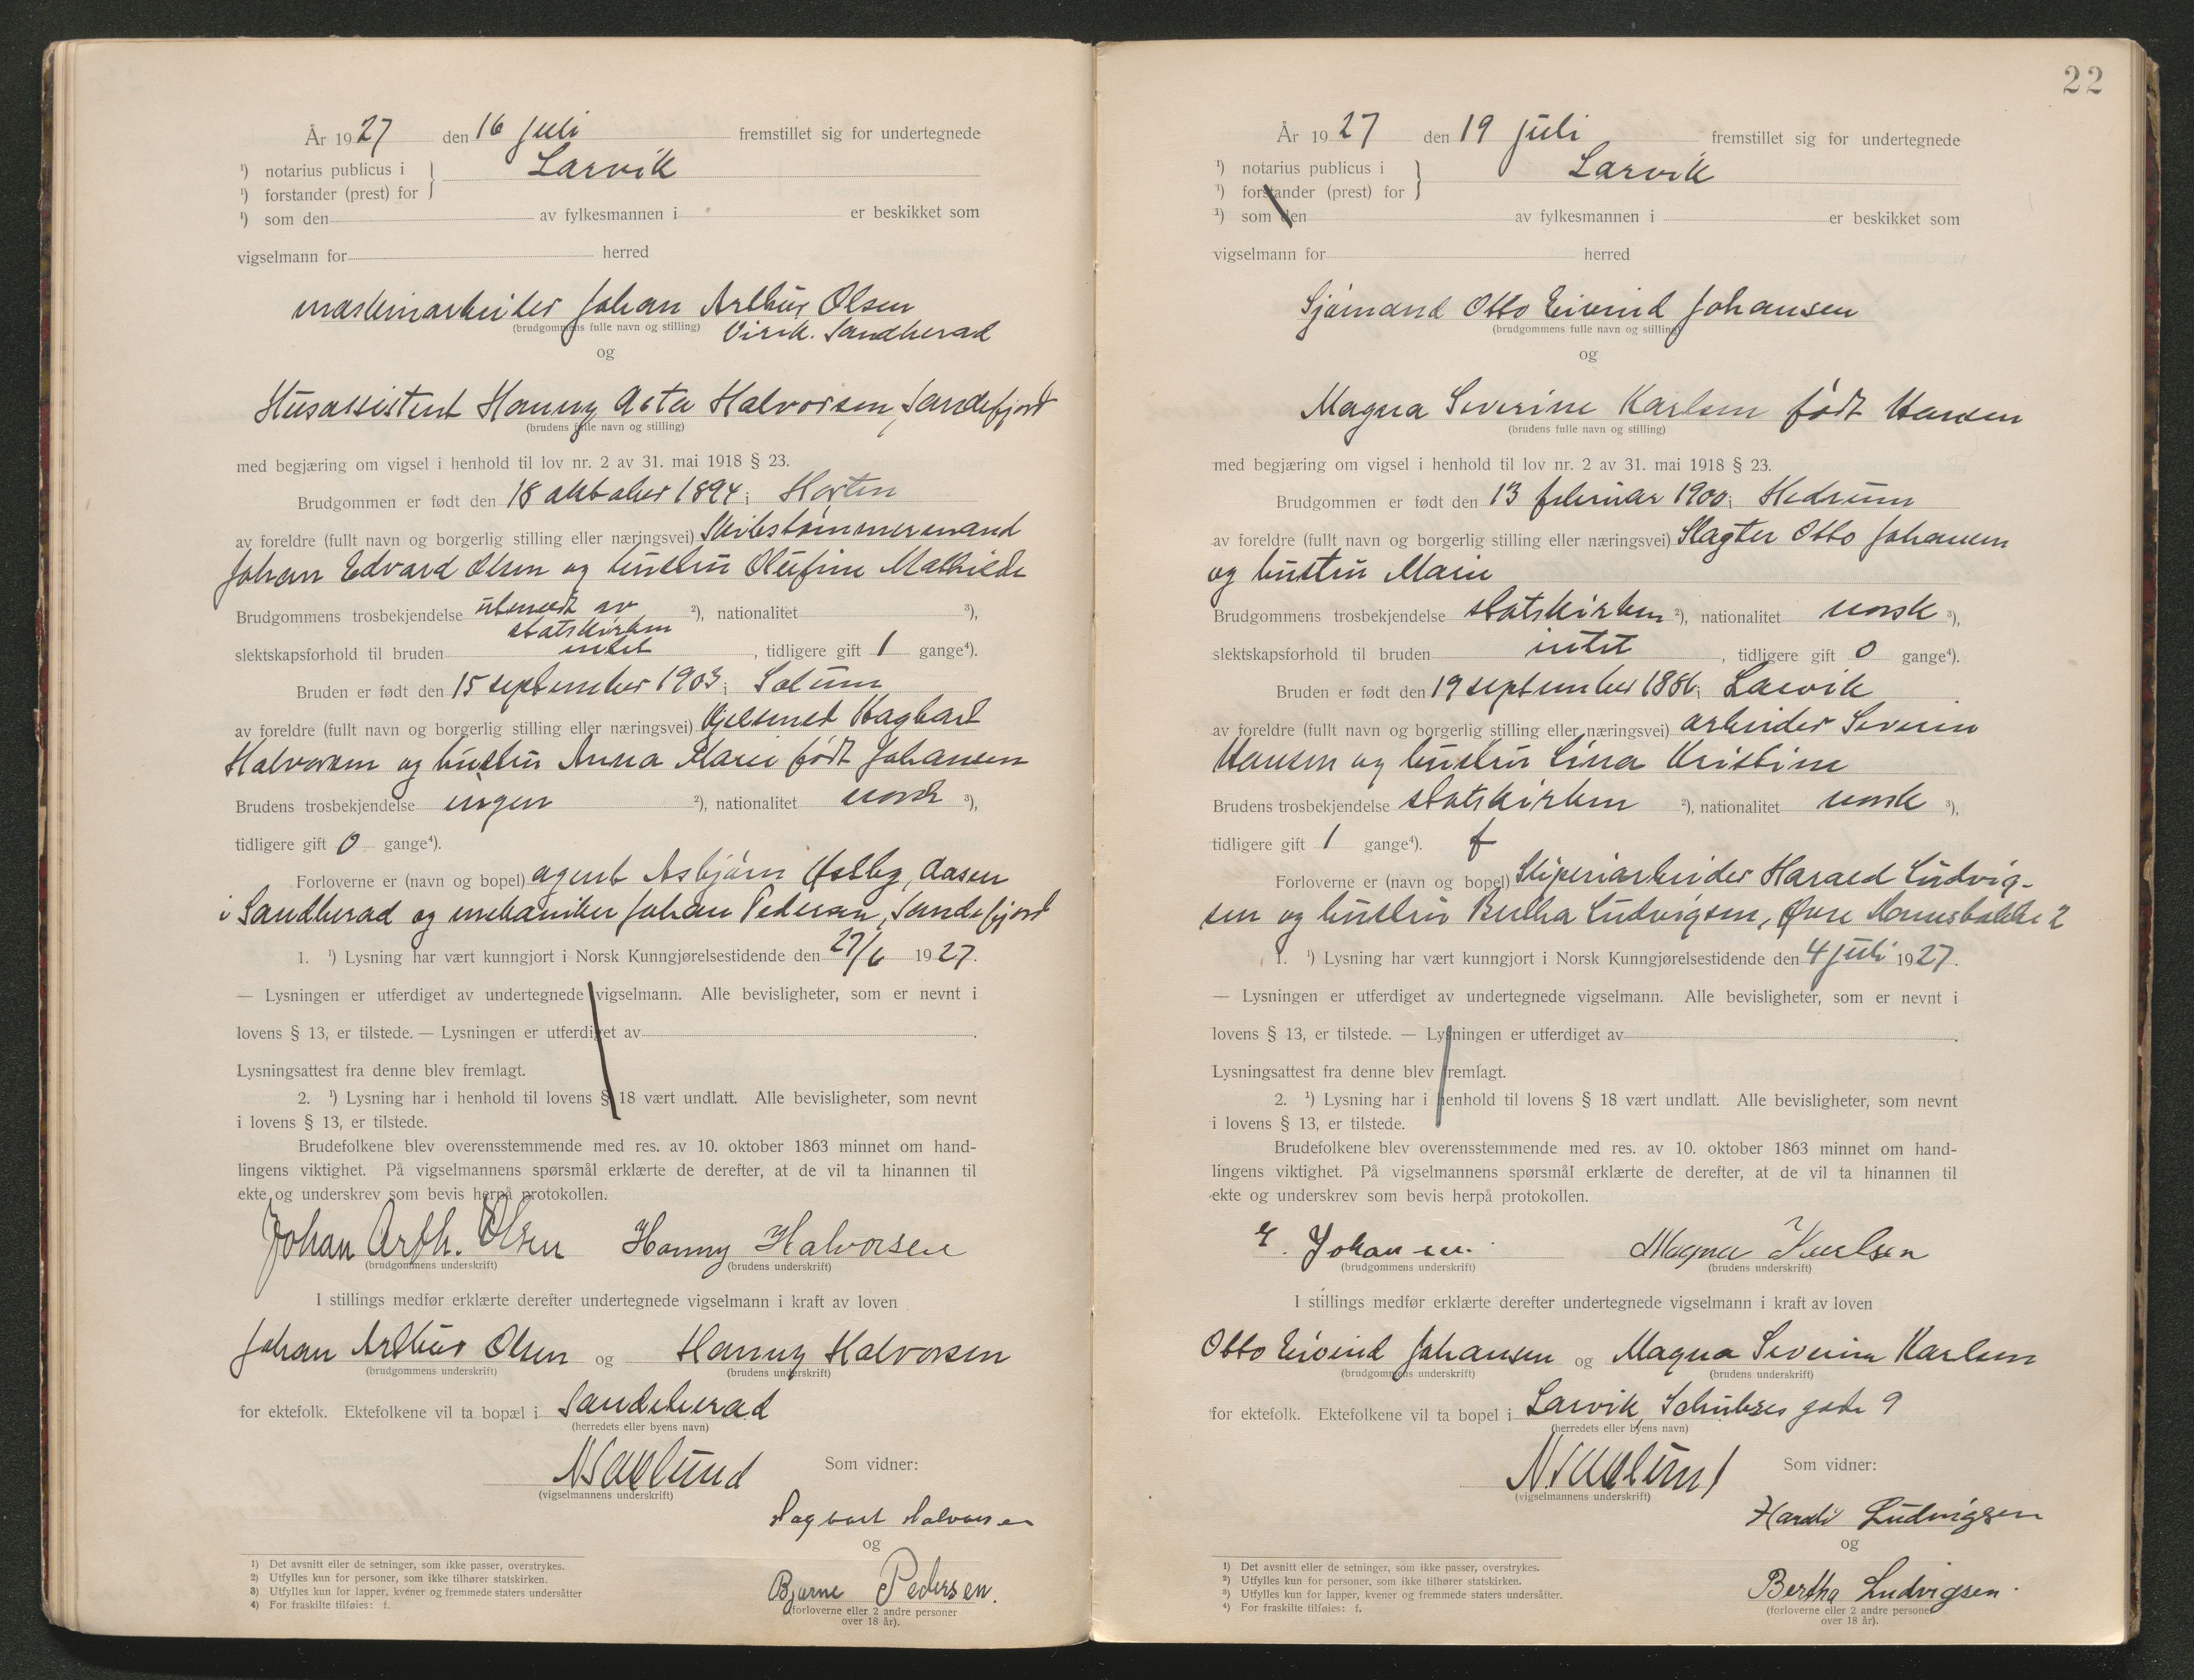 År 1927 den 16 juli fremstillet sig for undertegnede
¹) notarius publicus i } Larvik
¹) forstander (prest) for
¹) som den av fylkesmannen i er beskikket som
vigselmann for herred
maskinarbeider Johan Arthur Olsen
(brudgommens fulle navn og stilling) Virik. Sandherad
og
Husassistent Hanny Asta Halvorsen, Sandefjord
(brudens fulle navn og stilling)
med begjæring om vigsel i henhold til lov nr. 2 av 31. mai 1918 § 23.
Brudgommen er født den 18 oktober 1894 i Horten
av foreldre (fullt navn og borgerlig stilling eller næringsvei) Skibstømmermand
Johan Edvard Olsen og hustru Olufine Mathilde
Brudgommens trosbekjendelse utmeldt av ²), nationalitet ³),
statskirken
slektskapsforhold til bruden intet , tidligere gift 1 gange⁴).
Bruden er født den 15 september 1903 i Solum
av foreldre (fullt navn og borgerlig stilling eller næringsvei) Hjelsmed Hagbart
Halvorsen og hustru Anna Marie født Johansen
Brudens trosbekjendelse ingen ²), nationalitet norsk ³),
tidligere gift 0 gange⁴).
Forloverne er (navn og bopel) agent Asbjørn Østby, Aasen
i Sandherad og mekaniker Johan Pedersen, Sandefjord
1. ¹) Lysning har vært kunngjort i Norsk Kunngjørelsestidende den 27/6 1927.
— Lysningen er utferdiget av undertegnede vigselmann. Alle bevisligheter, som er nevnt i
lovens § 13, er tilstede. — Lysningen er utferdiget av .
Lysningsattest fra denne blev fremlagt.
2. ¹) Lysning har i henhold til lovens § 18 vært undlatt. Alle bevisligheter, som nevnt
i lovens § 13, er tilstede.
Brudefolkene blev overensstemmende med res. av 10. oktober 1863 minnet om hand-
lingens viktighet. På vigselmannens spørsmål erklærte de derefter, at de vil ta hinannen til
ekte og underskrev som bevis herpå protokollen.
Johan Arth. Olsen Hanny Halvorsen
(brudgommens underskrift) (brudens underskrift)
I stillings medfør erklærte derefter undertegnede vigselmann i kraft av loven
Johan Arthur Olsen og Hanny Halvorsen
(brudgommens underskrift) (brudens underskrift)
for ektefolk. Ektefolkene vil ta bopæl i Sandeherad
(herredets eller byens navn)
(vigselmannens underskrift) Som vidner:
Hagbart Halvorsen
og
Bjarne Pedersen.
(forloverne eller 2 andre personer
over 18 år).
1) Det avsnitt eller de setninger, som ikke passer, overstrykes.
2) Utfylles kun for personer, som ikke tilhører statskirken.
3) Utfylles kun for lapper, kvener og fremmede staters undersåtter
4) For fraskilte tilføies: f.
22
År 1927 den 19 juli fremstillet sig for undertegnede
¹) notarius publicus i } Larvik
¹) forstander (prest) for
¹) som den av fylkesmannen i er beskikket som
vigselmann for herred
Sjømand Otto Eivind Johansen
(brudgommens fulle navn og stilling)
og
Magna Severine Karlsen født Hansen
(brudens fulle navn og stilling)
med begjæring om vigsel i henhold til lov nr. 2 av 31. mai 1918 § 23.
Brudgommen er født den 13 februar 1900 i Hedrum
av foreldre (fullt navn og borgerlig stilling eller næringsvei) Slagter Otto Johansen
og hustru Marie
Brudgommens trosbekjendelse statskirken ²), nationalitet norsk ³),
slektskapsforhold til bruden intet , tidligere gift 0 gange⁴).
Bruden er født den 19 september 1886 i Larvik
av foreldre (fullt navn og borgerlig stilling eller næringsvei) arbeider Severin
Hansen og hustru Lina Kristine
Brudens trosbekjendelse statskirken ²), nationalitet norsk ³),
tidligere gift 1 gange⁴). f
Forloverne er (navn og bopel) Sliperiarbeider Harald Ludvig-
sen og hustru Bertha Ludvigsen, Øvre 2
1. ¹) Lysning har vært kunngjort i Norsk Kunngjørelsestidende den 4 juli 1927.
— Lysningen er utferdiget av undertegnede vigselmann. Alle bevisligheter, som er nevnt i
lovens § 13, er tilstede. — Lysningen er utferdiget av .
Lysningsattest fra denne blev fremlagt.
2. ¹) Lysning har i henhold til lovens § 18 vært undlatt. Alle bevisligheter, som nevnt
i lovens § 13, er tilstede.
Brudefolkene blev overensstemmende med res. av 10. oktober 1863 minnet om hand-
lingens viktighet. På vigselmannens spørsmål erklærte de derefter, at de vil ta hinannen til
ekte og underskrev som bevis herpå protokollen.
E. Johansen. Magna Karlsen
(brudgommens underskrift) (brudens underskrift)
I stillings medfør erklærte derefter undertegnede vigselmann i kraft av loven
Otto Eivind Johansen og Magna Severine Karlsen
(brudgommens underskrift) (brudens underskrift)
for ektefolk. Ektefolkene vil ta bopel i Larvik, Schultzes gade 9
(herredets eller byens navn)
(vigselmannens underskrift) Som vidner:
Harald Ludvigsen
og
Bertha Ludvigsen.
(forloverne eller 2 andre persone
over 18 år).
1) Det avsnitt eller de setninger, som ikke passer, overstrykes.
2) Utfylles kun for personer, som ikke tilhører statskirken.
3) Utfylles kun for lapper, kvener og fremmede staters undersåtter.
4) For fraskilte tilføies: f.